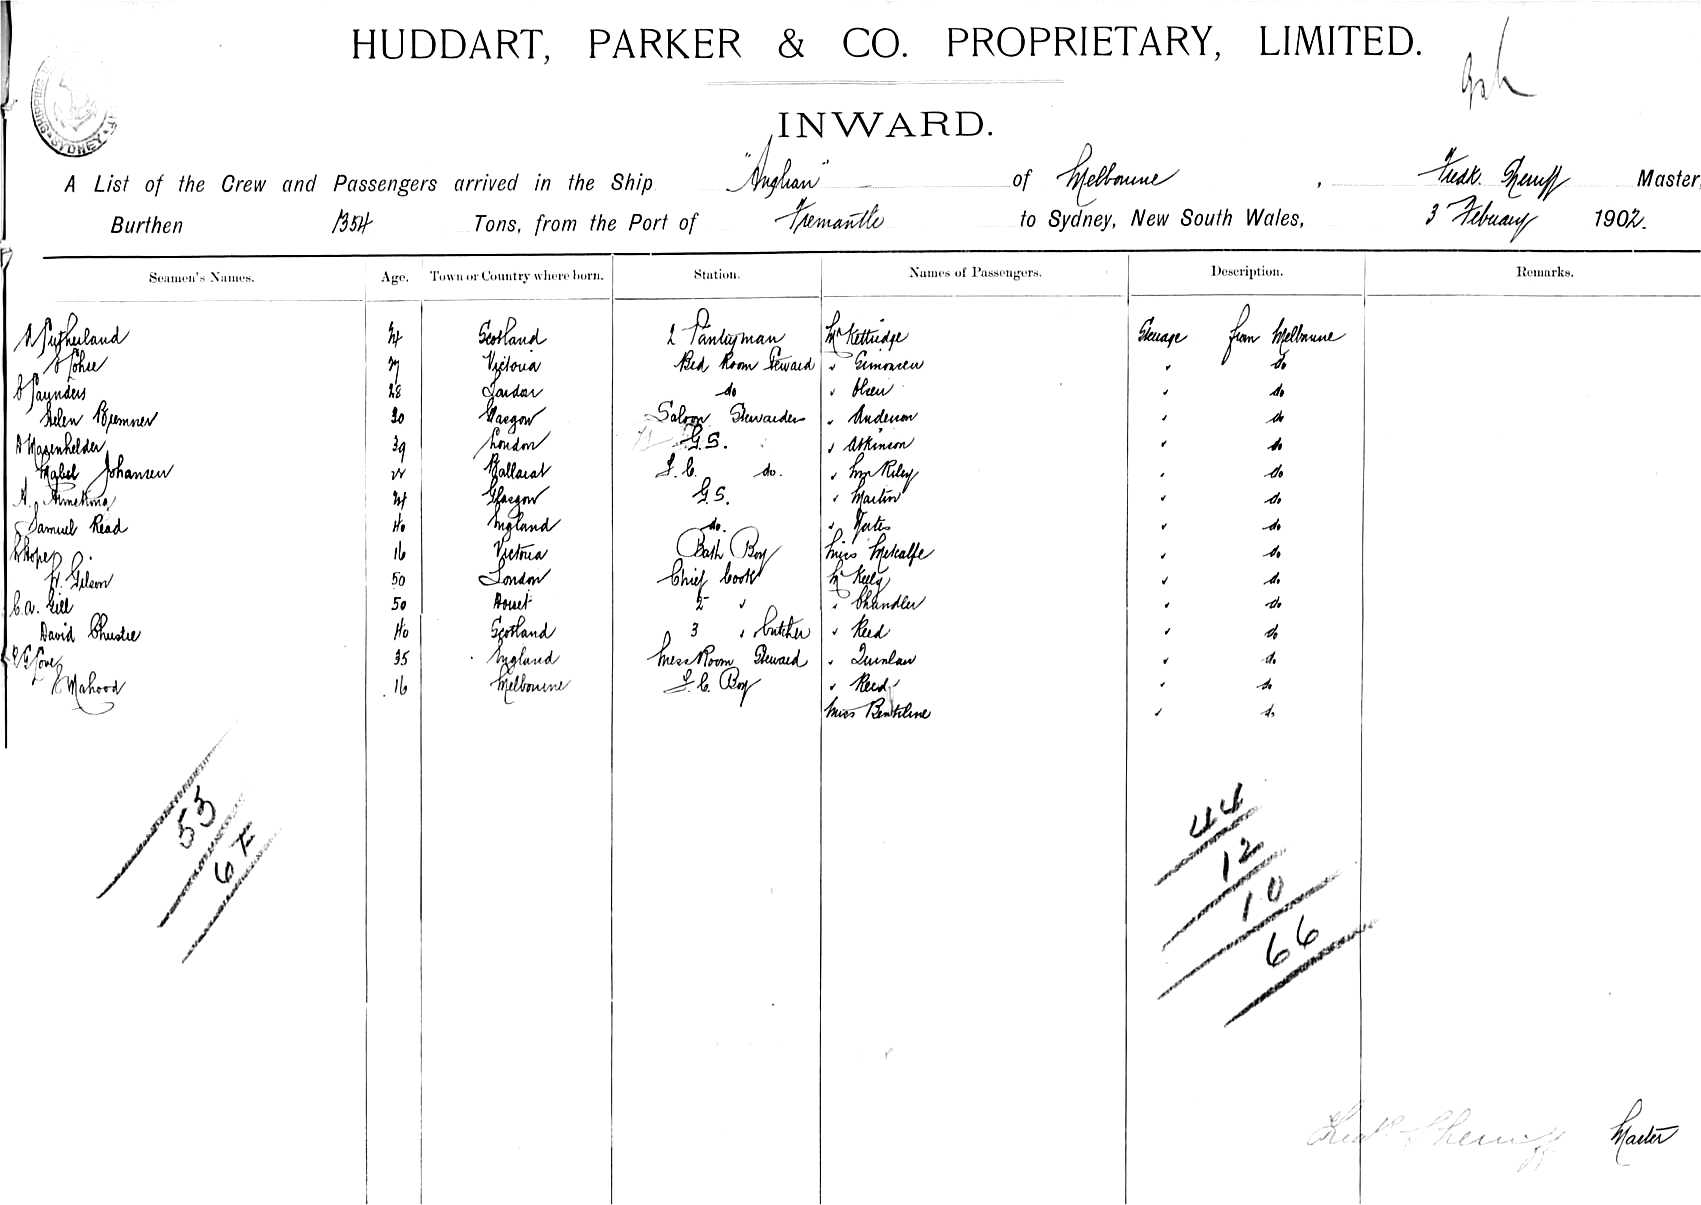 HUDDART, PARKER & CO. PROPRIETARY, LIMITED.
INWARD.
SYDNEY
A List of the Crew and Passengers arrived in the Ship "Anglian" of Melbourne, Fredk. Sherriff Master,
Burthen 1354 Tons, from the Port of Fremantle to Sydney, New South Wales, 3 February 1902.
Seamen's Names. Age. Town or Country where born. Station. Names of Passengers. Description. Remarks.
Sutherland 24 Scotland 2 Pantryman Mr Kettridge Steerage from Melbourne
27 Victoria Bed Room Steward " Simonsen " do
Saunders 28 London do " Olsen " do
Helen Bremner 30 Glasgow Saloon Stewardess " Anderson " do
39 London G.S. " Atkinson " do
Mabel Johansen 22 Ballarat F.C. do. " Wm Riley " do
A. Armstrong 24 Glasgow G.S. " Martin " do
Samuel Read 40 England do. " Yates " do
Hope 16 Victoria Bath Boy Miss Metcalfe " do
H. Gilson 50 London Chief Cook Mr Keely " do
C.A. Gill 50 Dorset 2 " " Chandler " do
David Christie 40 Scotland 3 " butcher " Reed " do
35 England Mess Room Steward " Quinlan " do
Mahood 16 Melbourne F.C. Boy " Reed " do
Miss " do
53
67
44
12
10
66
Fredk Sherriff Master